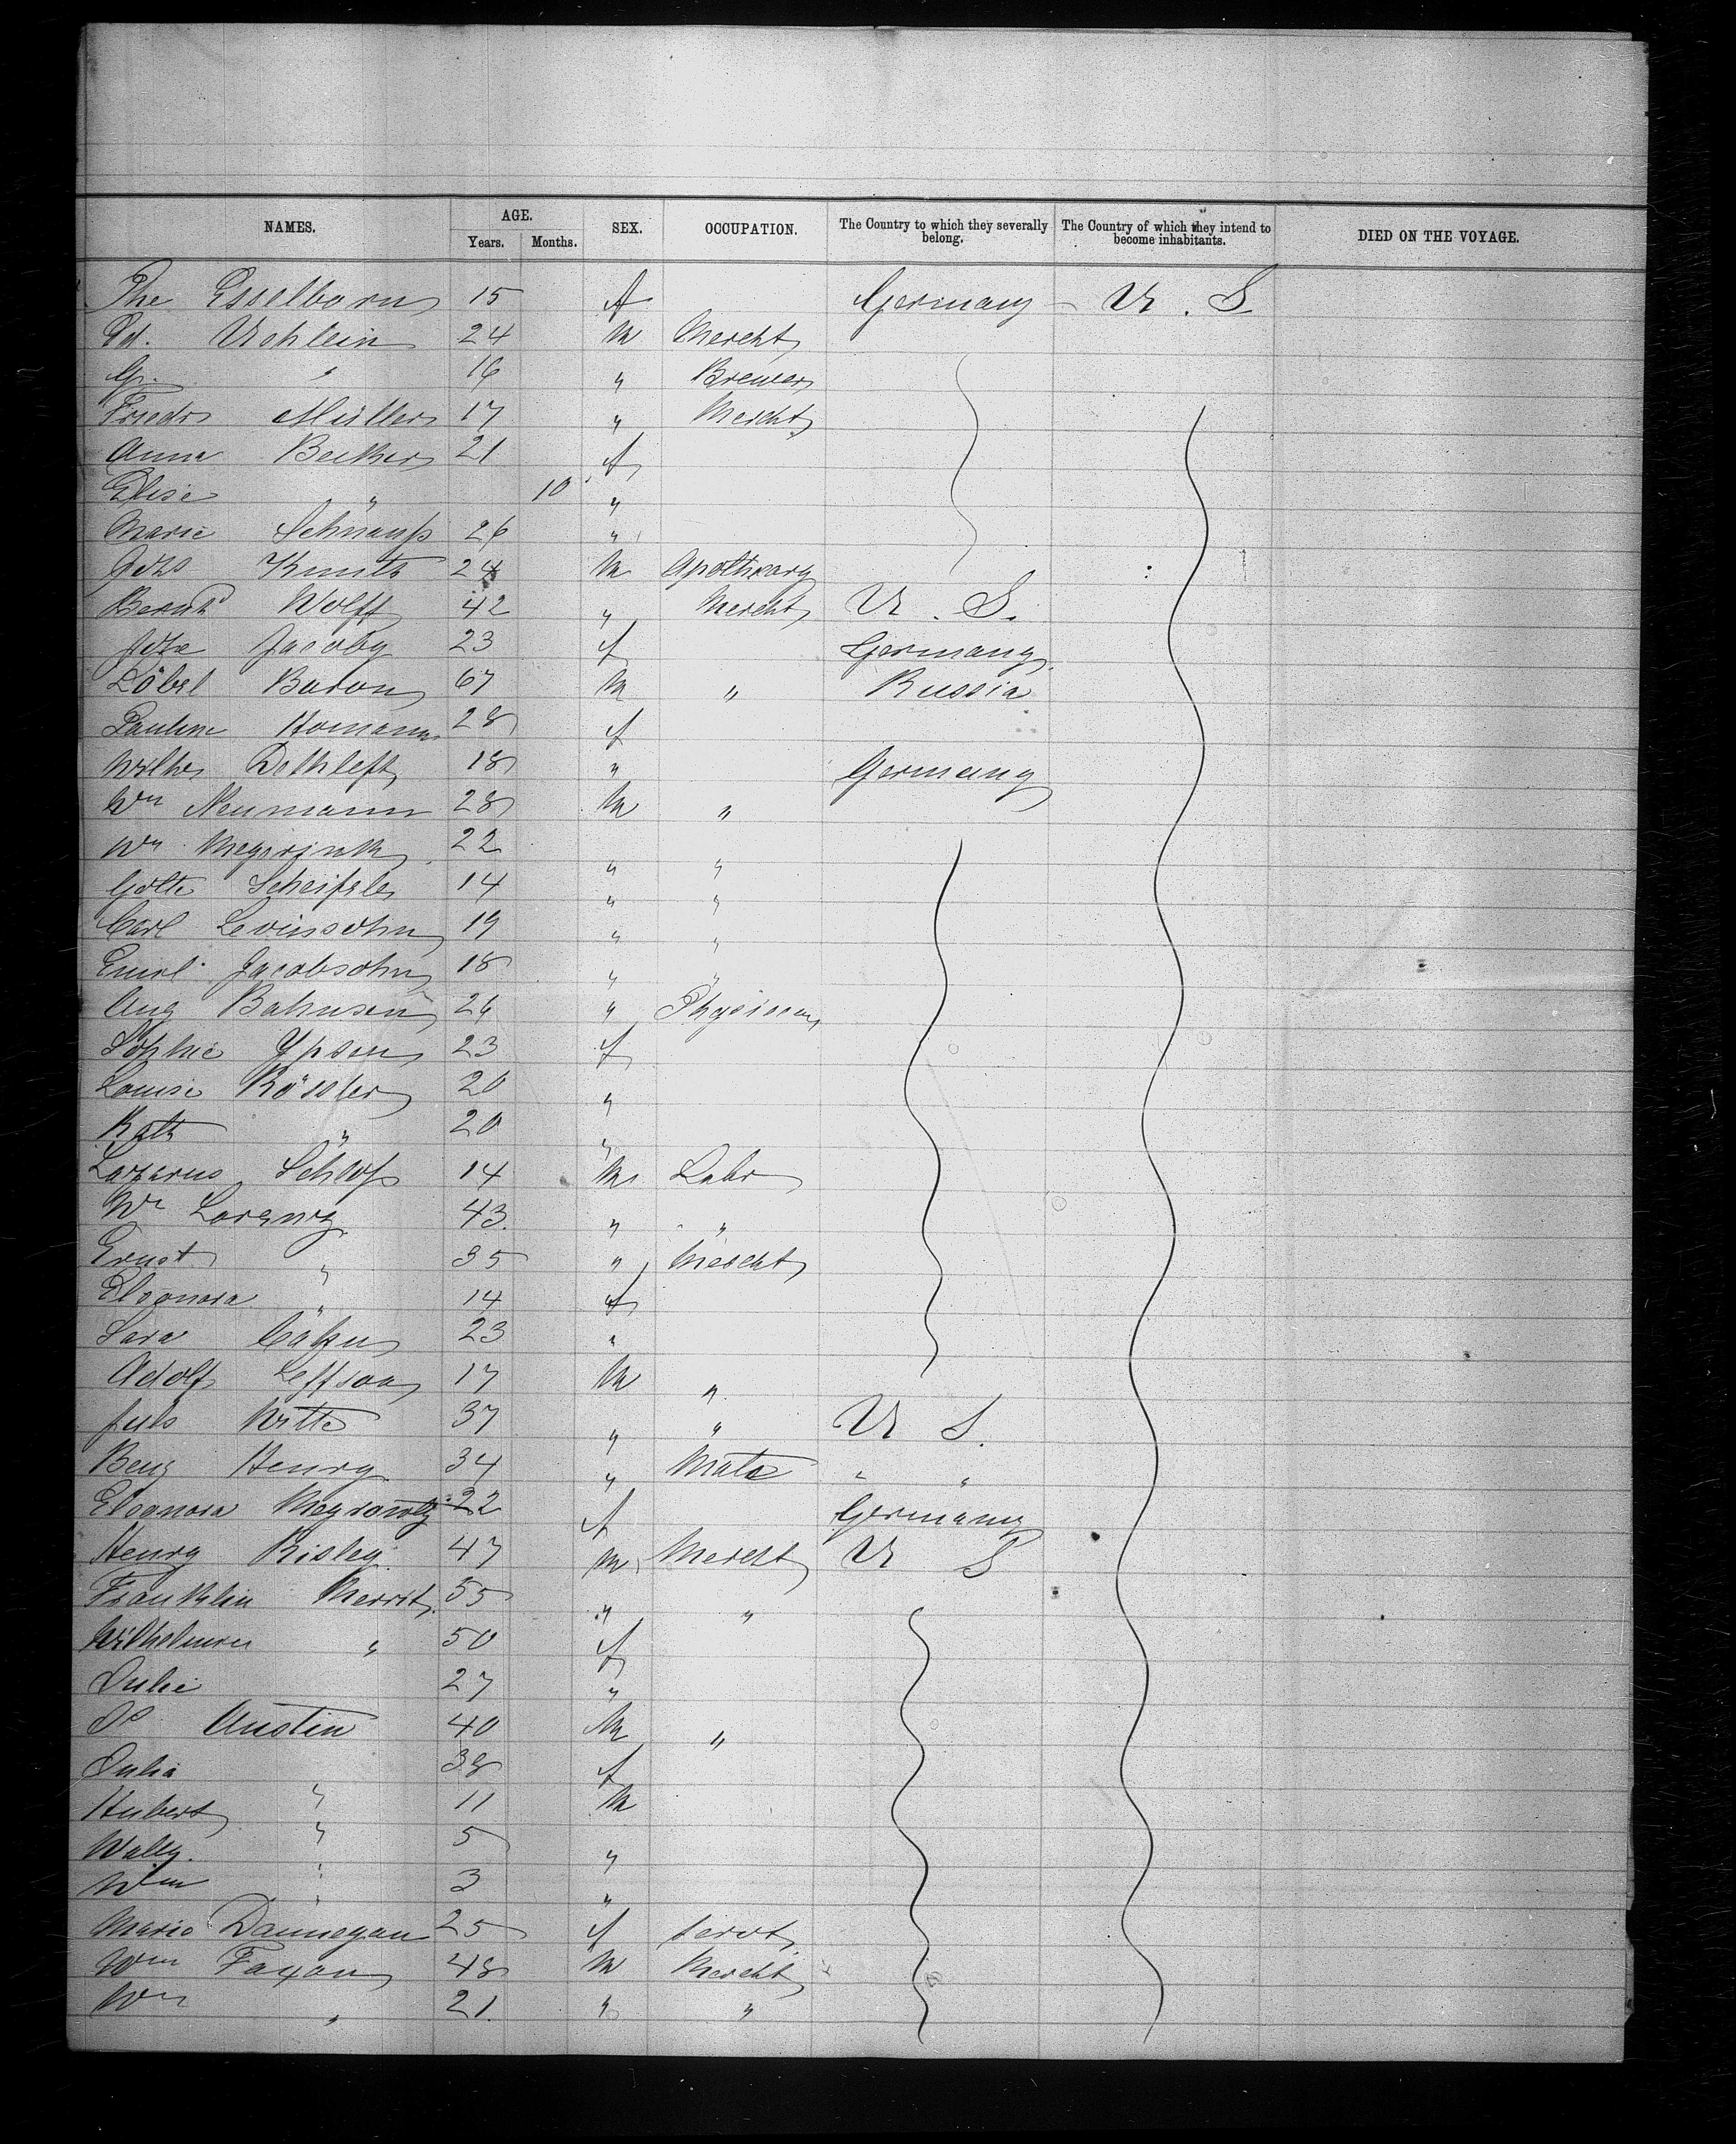 NAMES. AGE. SEX. OCCUPATION. The Country to which they severally belong. The Country of which they intend to become inhabitants. DIED ON THE VOYAGE.
Years. Months.
The Esselborn 15 f Germany U. S
Ed. Uehlein 24 M Mercht
G. " 16 " Brewer
Friedr Müller 17 " Mercht
Anna Becker 21 f
Elise " 10 "
Marie Schnauß 26 "
Johs 24 M Apothecary
Bernhd Wolff 42 " Mercht U. S.
Jacoby 23 f Germany
Löbel Baron 67 M " Russia
Pauline Homann 28 f
Wilhe Dethleft 18 " Germany
Wm Neumann 28 M "
Wm 22 " "
Scheifele 14 " "
Carl Levinssohn 19 " "
Emil Jacobsohn 18 " "
Aug Bahnsen 26 " Physician
Sophie Ypsen 23 f
Louise Rössler 20 "
Kath " 20 "
Lazarus Schloß 14 M Labr
Wm Lorenz 43 " "
Ernst " 35 " Mercht
Eleonora " 14 f
Sara 23 "
Adolf Leffson 17 M "
Juls Witte 37 " " U S.
Benj Henry 34 " Mate " "
Eleonora 22 f Germany
Henry Risley 47 M Mercht U S
Franklin Merritt 55 " "
Wilhelmine " 50 f
Julie 27 "
Jo Austin 40 M "
Julia " 38 f
Hubert " 11 M
Wally " 5 "
Wm " 3 "
Marie Dannegan 25 f servt
Wm Faxon 48 M Mercht
Wm " 21 " "